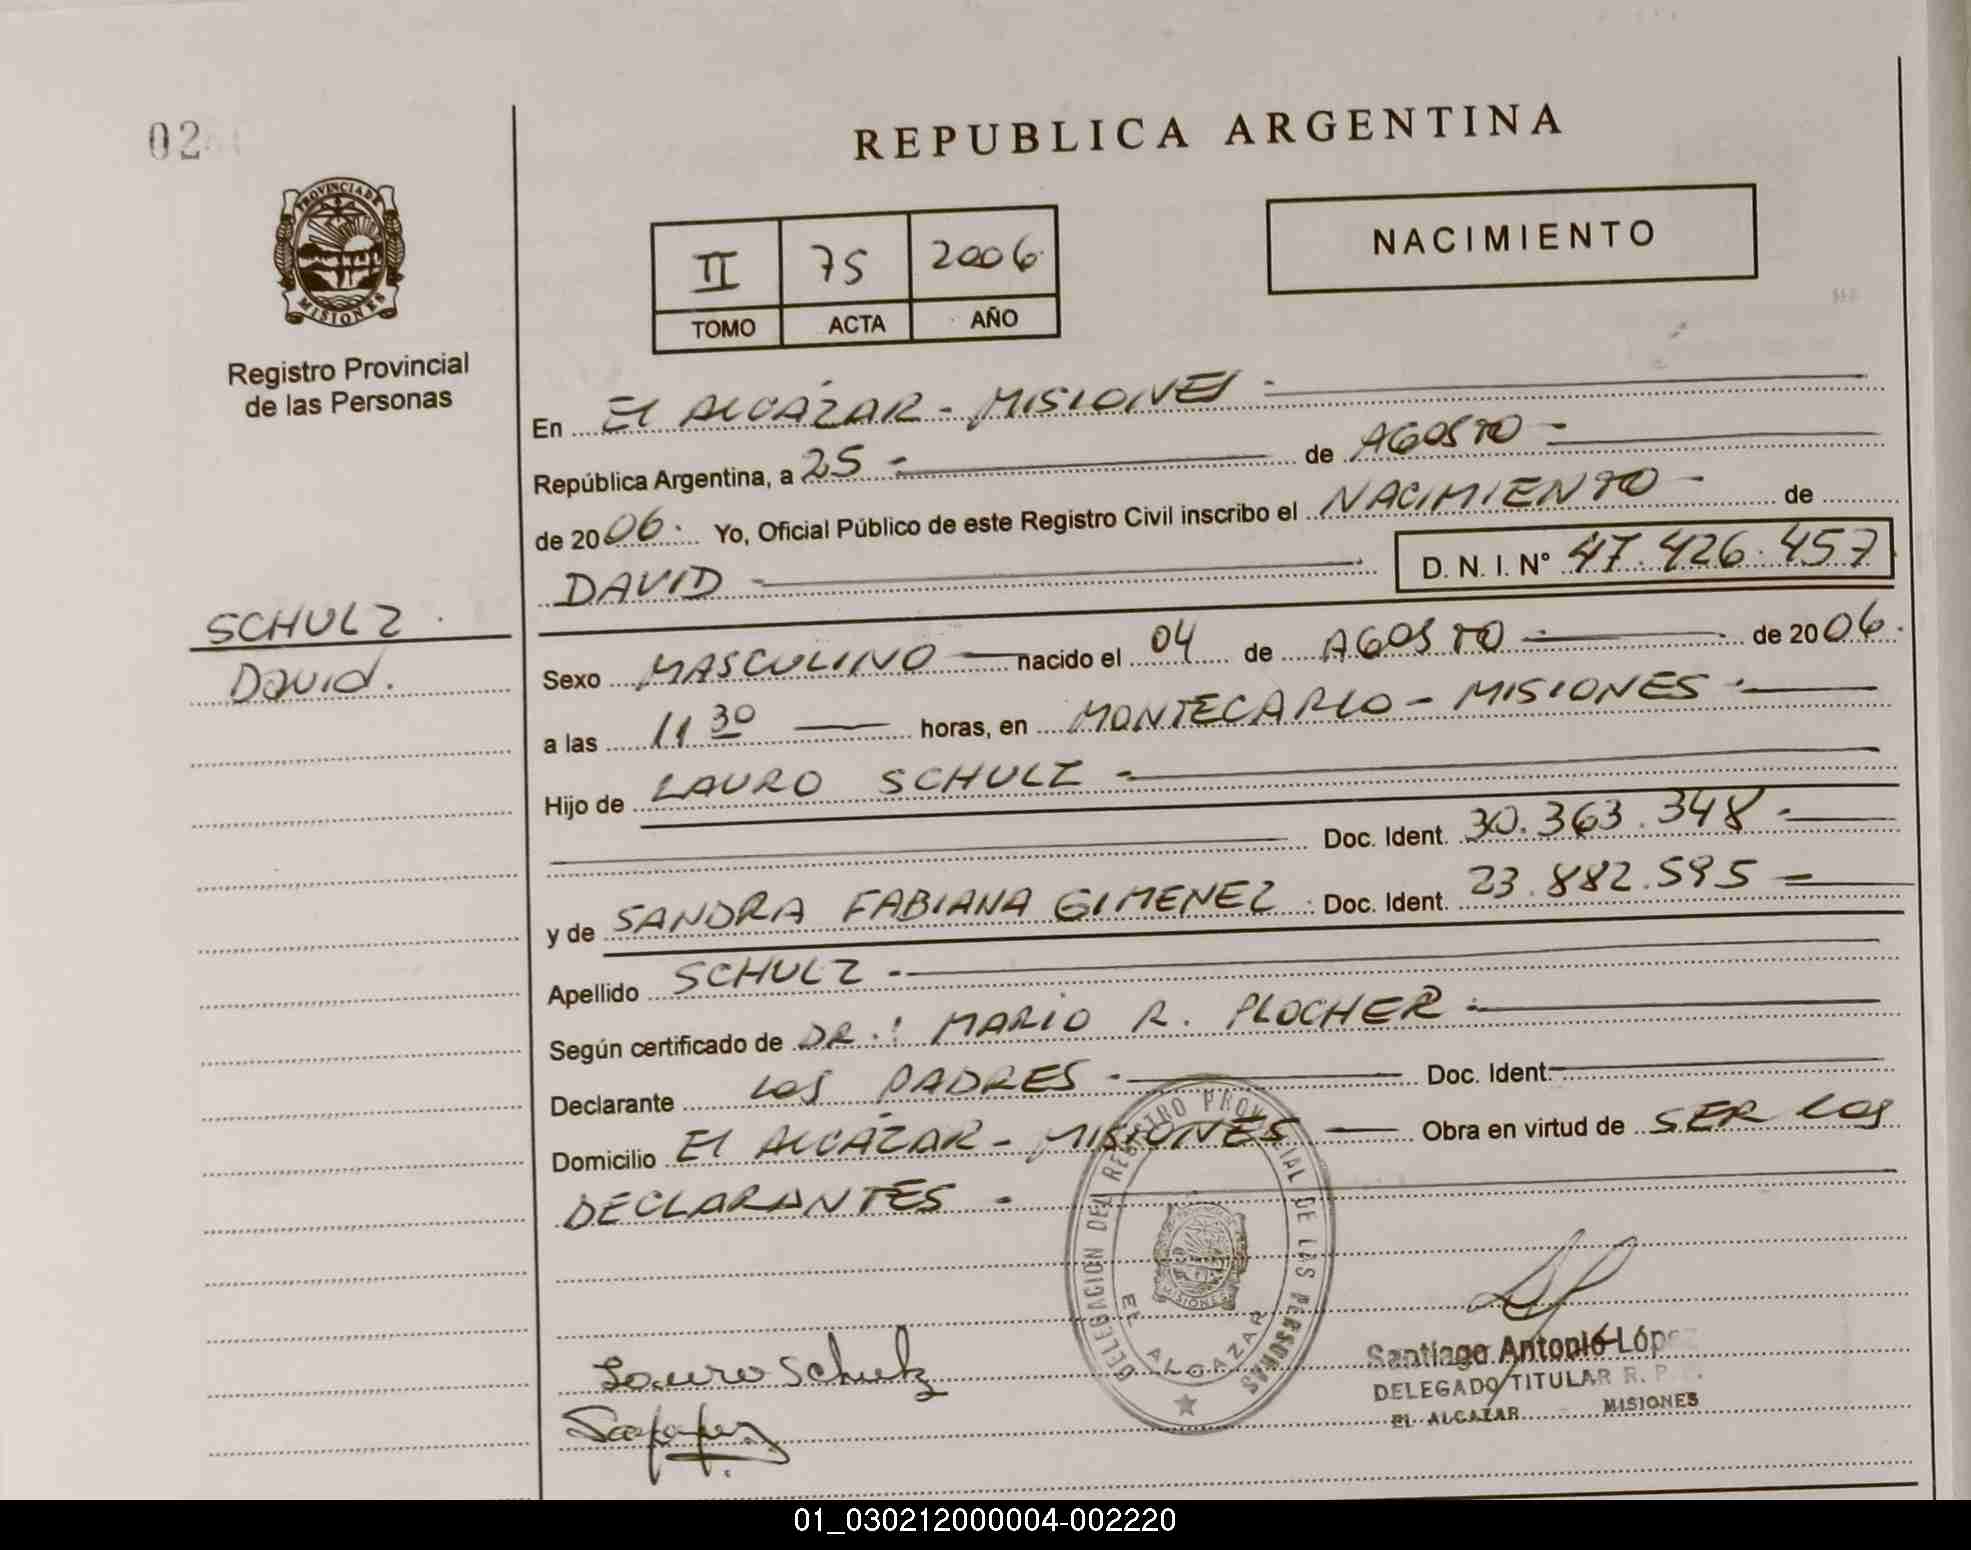 02
REPUBLICA ARGENTINA
PROVINCIA DE
MISIONES
Registro Provincial
de las Personas
II 75 2006
TOMO ACTA AÑO
NACIMIENTO
En EL ALCÁZAR - MISIONES -
República Argentina, a 25 - de AGOSTO -
de 2006. Yo, Oficial Público de este Registro Civil inscribo el NACIMIENTO - de
DAVID D. N. I. N° 47.426.457
SCHULZ.
David.
Sexo MASCULINO nacido el 04 de AGOSTO - de 2006.
a las 11 30 horas, en MONTECARLO - MISIONES -
Hijo de LAURO SCHULZ -
Doc. Ident. 30.363.348 -
y de SANDRA FABIANA GIMENEZ. Doc. Ident. 23.882.595 -
Apellido SCHULZ -
Según certificado de DR.: MARIO R. PLOCHER -
Declarante LOS PADRES - Doc. Ident.
Domicilio EL ALCÁZAR - MISIONES Obra en virtud de SER LOS
DECLARANTES -
DELEGACION DEL REGISTRO PROVINCIAL DE LAS PERSONAS
EL ALCAZAR
MISIONES
Lauro Schulz
Santiago Antonio López
DELEGADO TITULAR R. P. P.
EL ALCAZAR MISIONES
01_030212000004-002220